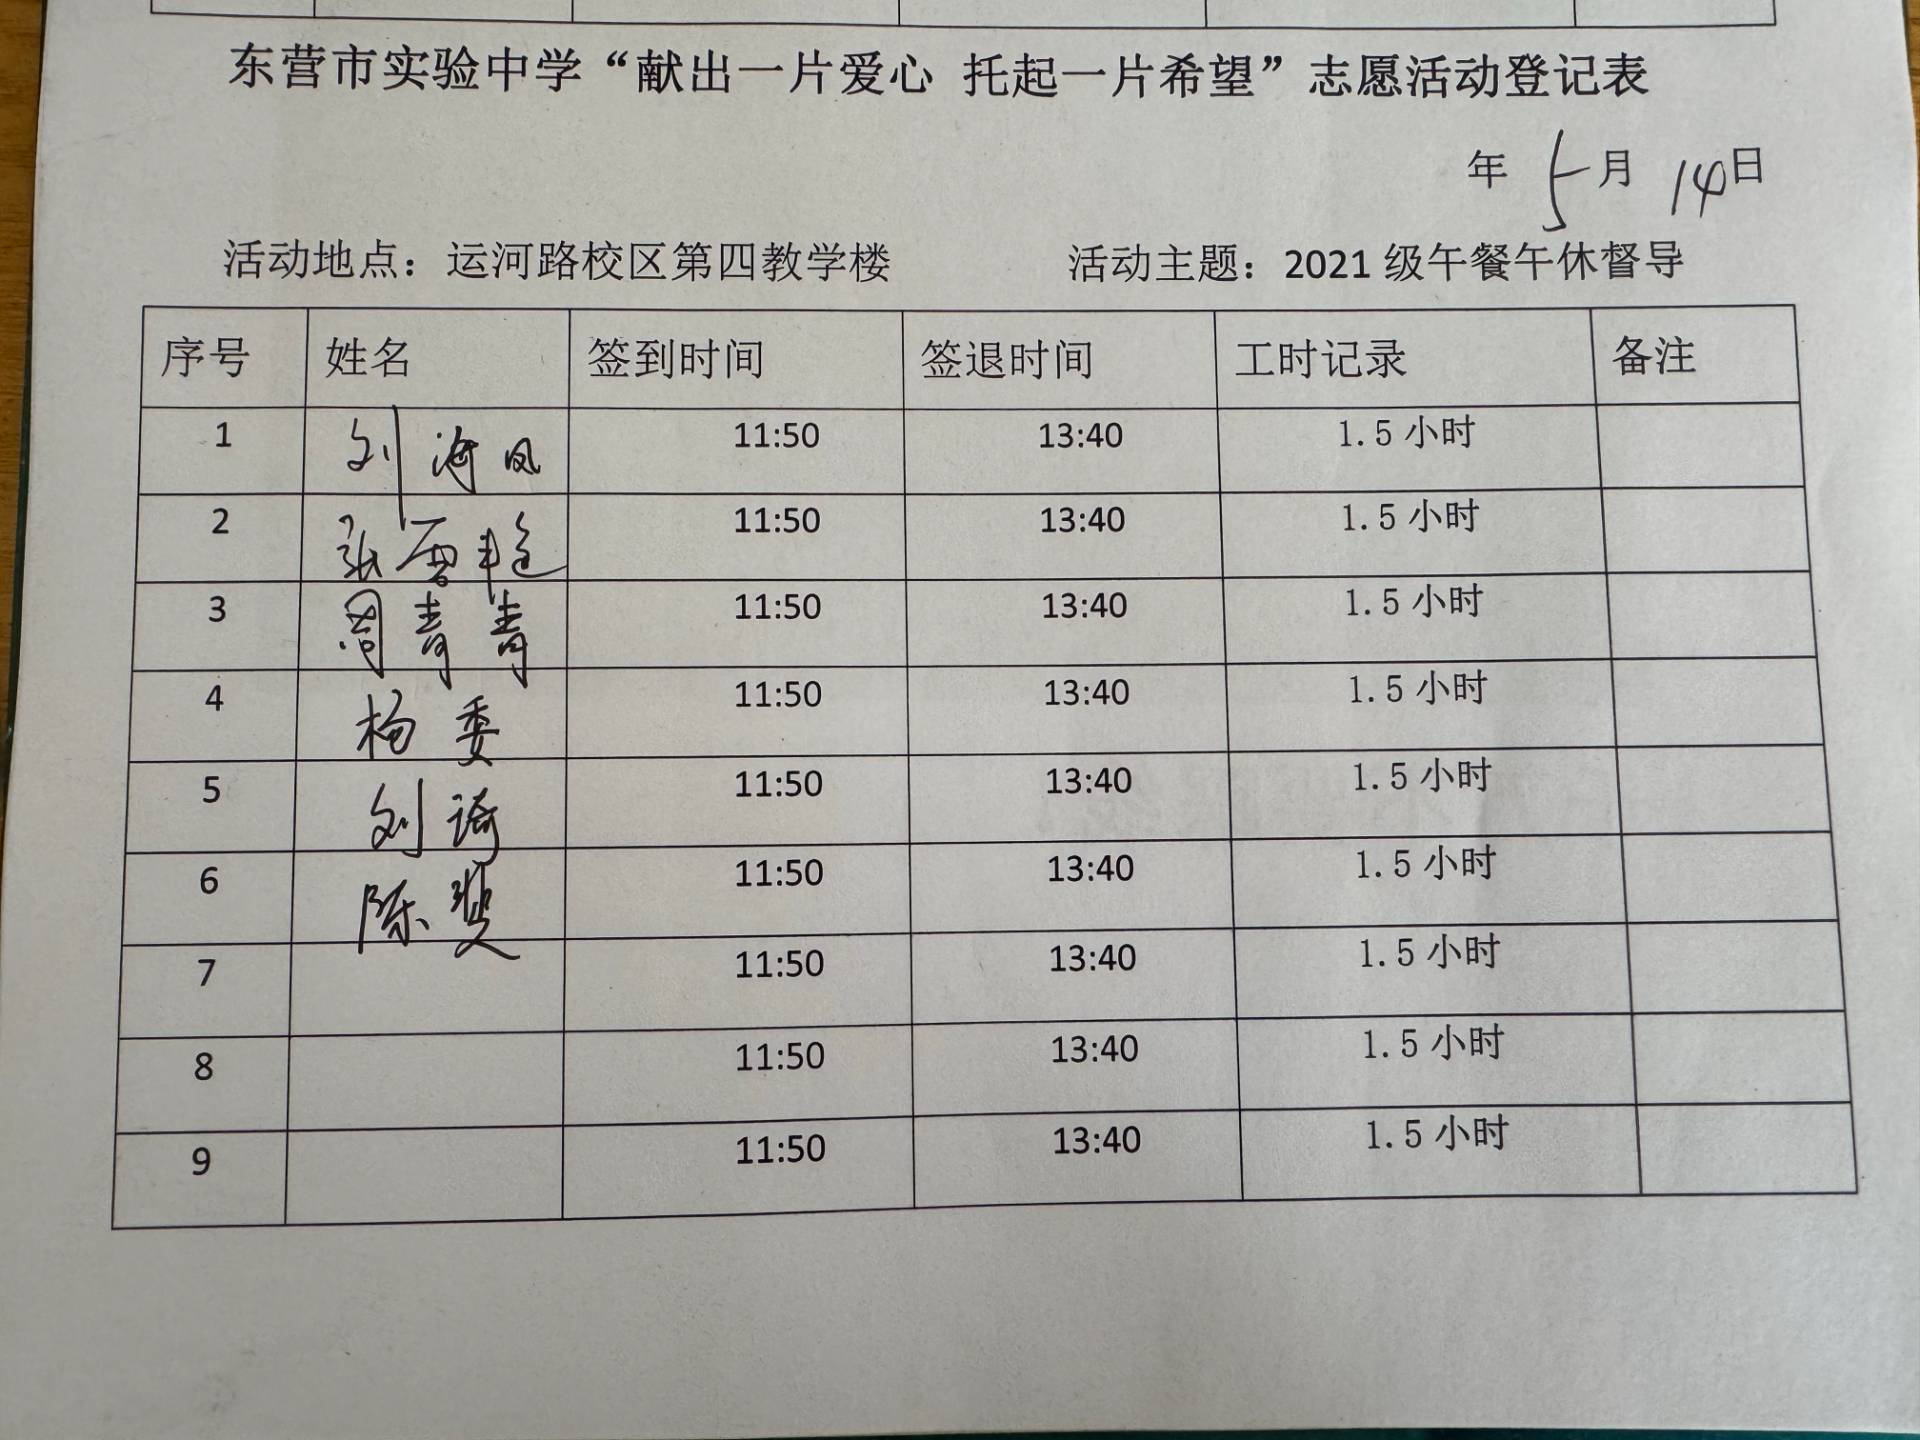 东营市实验中学“献出一片爱心 托起一片希望”志愿活动登记表
年 5月 14日
活动地点：运河路校区第四教学楼 活动主题：2021 级午餐午休督导
序号 姓名 签到时间 签退时间 工时记录 备注
1 刘海凤 11:50 13:40 1.5 小时
2 张雪艳 11:50 13:40 1.5 小时
3 周青青 11:50 13:40 1.5 小时
4 杨委 11:50 13:40 1.5 小时
5 刘琦 11:50 13:40 1.5 小时
6 陈斐 11:50 13:40 1.5 小时
7 11:50 13:40 1.5 小时
8 11:50 13:40 1.5 小时
9 11:50 13:40 1.5 小时